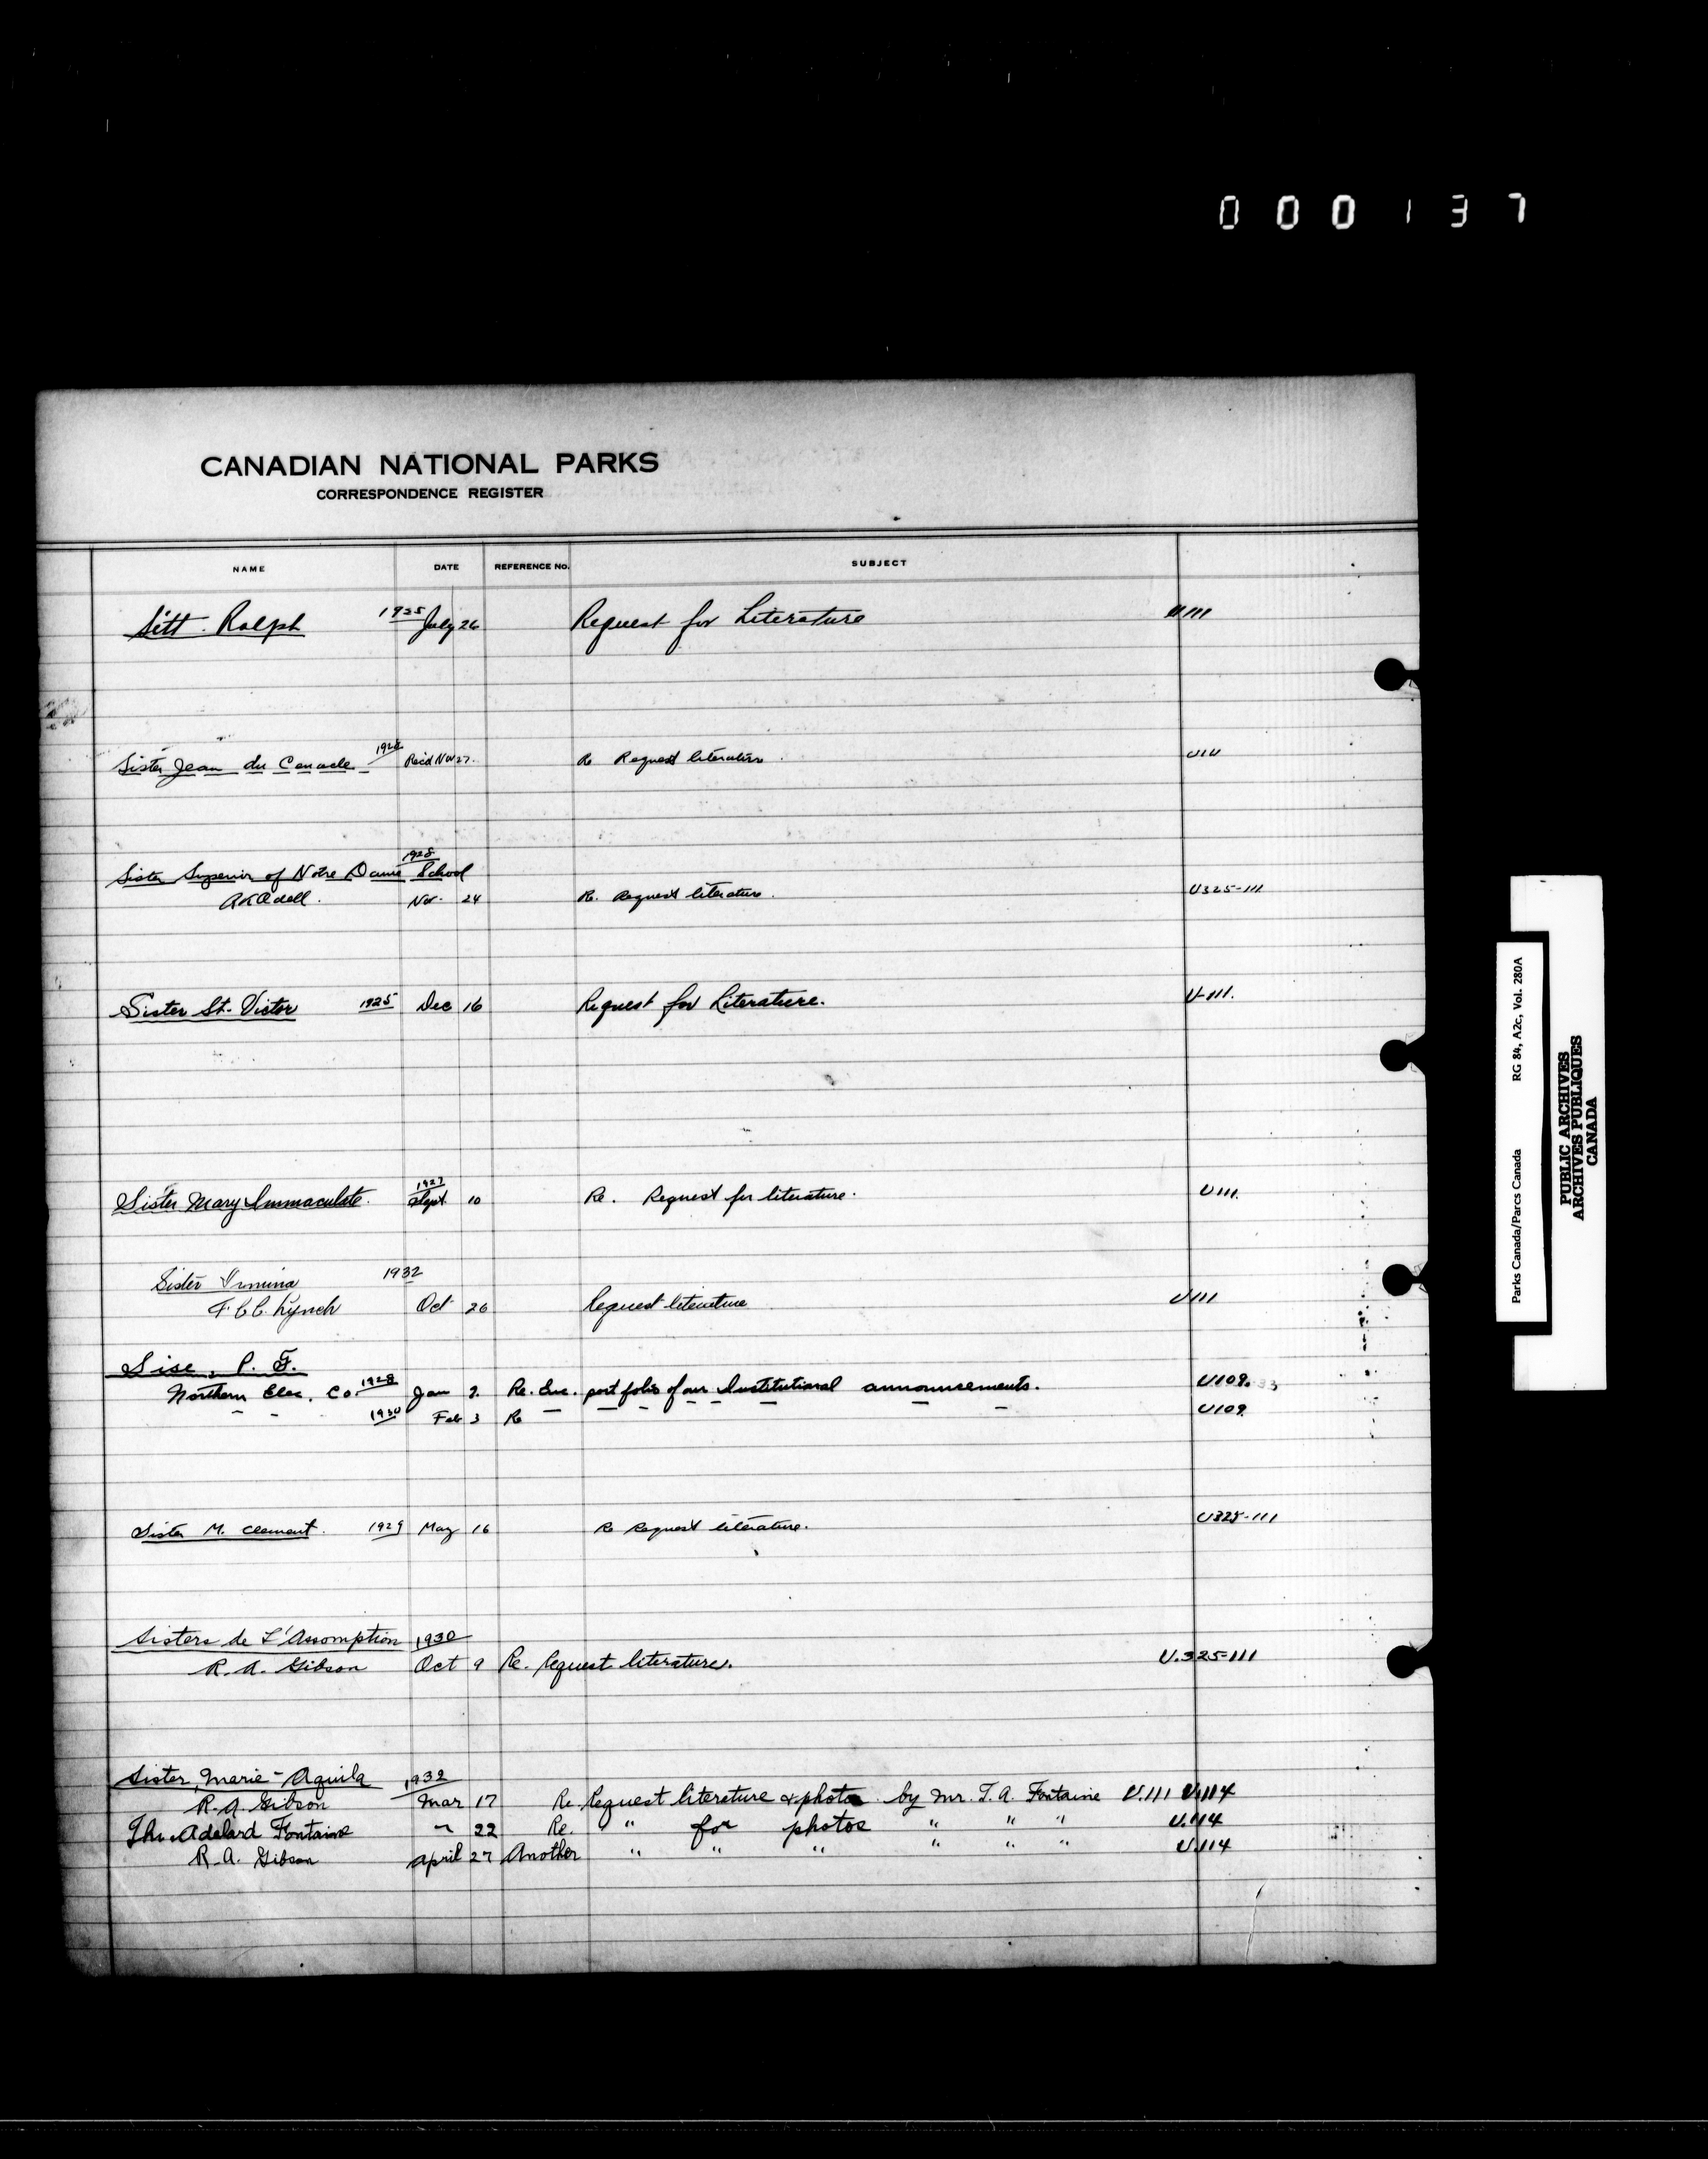 000137
CANADIAN NATIONAL PARKS
CORRESPONDENCE REGISTER
NAME DATE REFERENCE No. SUBJECT
Sitt. Ralph 1925 July 26 Request for Literature U111
Sister Jean du Cenacle 1928 Rec'd Nov 27. Re Request literature U111
1928
Sister Superior of Notre Dame School
Nov. 24 Re. Request literature. U325-111
Sister St. Victor 1925 Dec 16 Request for Literature. U-111.
1927
Sister Mary Immaculate. Sept. 10 Re. Request for literature. U111.
Sister 1932
F.C.C. Lynch Oct 26 Request literature U111
Sise, P. F.
Northern Elec. Co. 1928 Jan 2. Re. Enc. portfolio of our Institutional announcements. U109.
" " 1930 Feb 3 Re — — — — — — — U109
Sister M. Clement. 1929 May 16 Re Request literature. U325-111
Sisters de L'Assomption 1930
R. A. Gibson Oct 9 Re. Request literature. U.325-111
Sister Marie-Aquila 1932
R. A. Gibson Mar 17 Re Request literature & photos by Mr. T. A. Fontaine U.111 U.114
Adelard Fontaine " 22 Re. " for photos " " " U.114
R. A. Gibson April 27 Another " " " " " " U.114
Parks Canada/Parcs Canada RG 84, A2c, Vol. 280A
PUBLIC ARCHIVES
ARCHIVES PUBLIQUES
CANADA